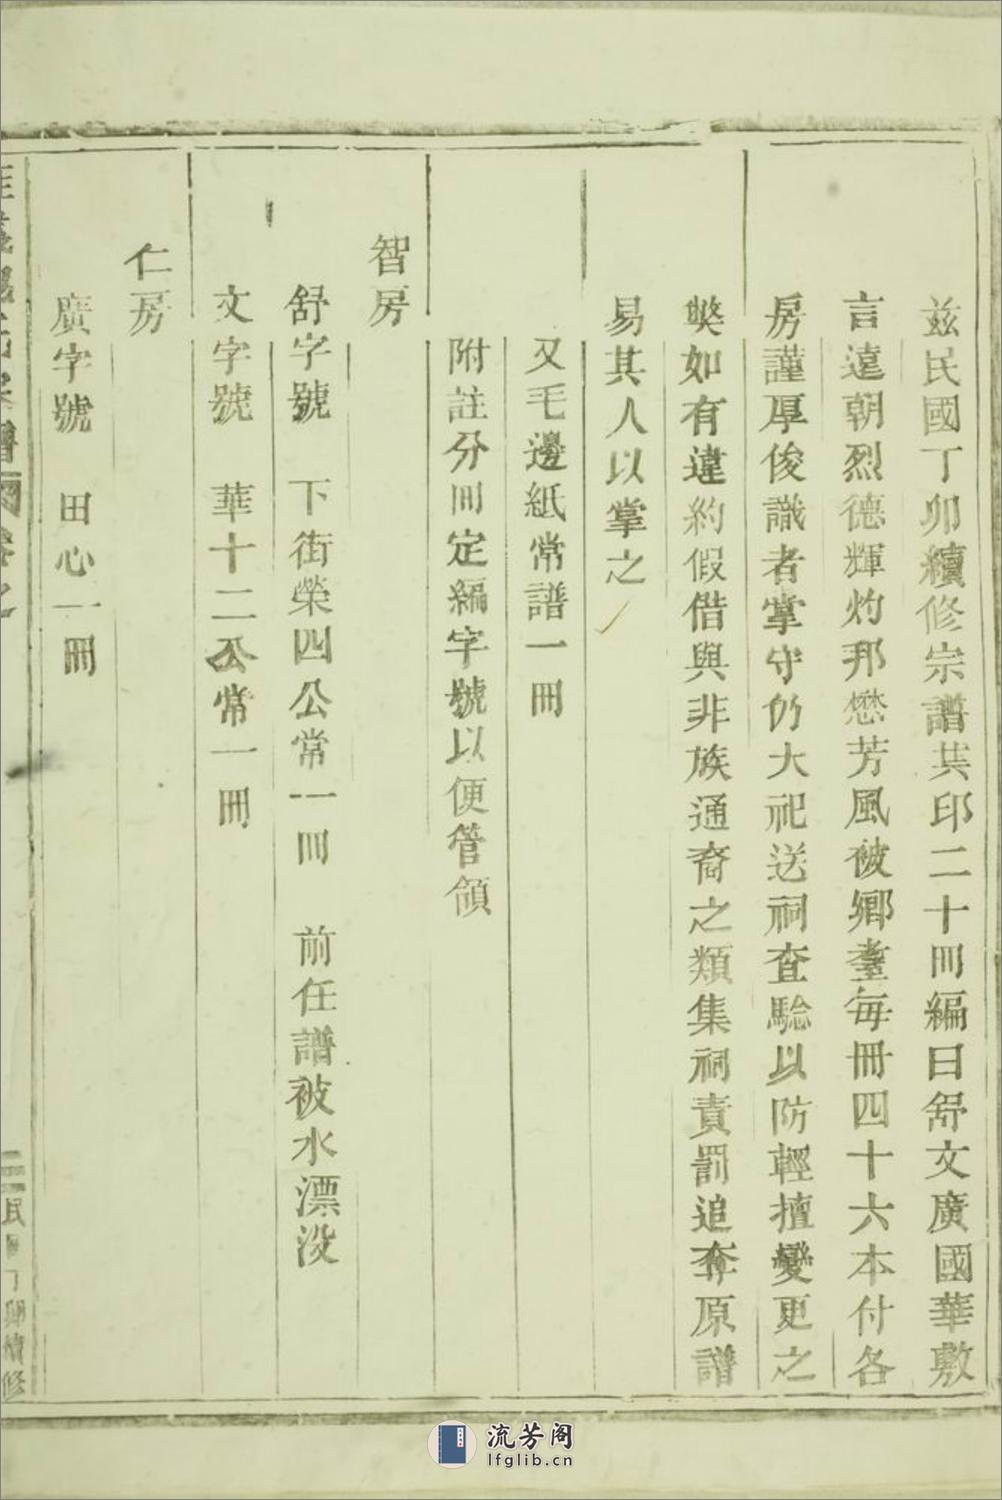 茲民國丁卯續修宗譜共印二十冊編曰舒文廣國華敷
言遠朝烈德輝灼邦懋芳風被鄉耋每冊四十六本付各
房謹厚俊識者掌守仍大祀送祠查驗以防輕擅變更之
獘如有違約假借與非族通裔之類集祠責罰追奪原譜
易其人以掌之
又毛邊紙常譜一冊
附註分冊定編字號以便管領
智房
舒字號 下街榮四公常一冊 前任譜被水漂没
文字號 華十二公常一冊
仁房
廣字號 田心一冊
民國丁卯續修
流芳阁
lfglib.cn